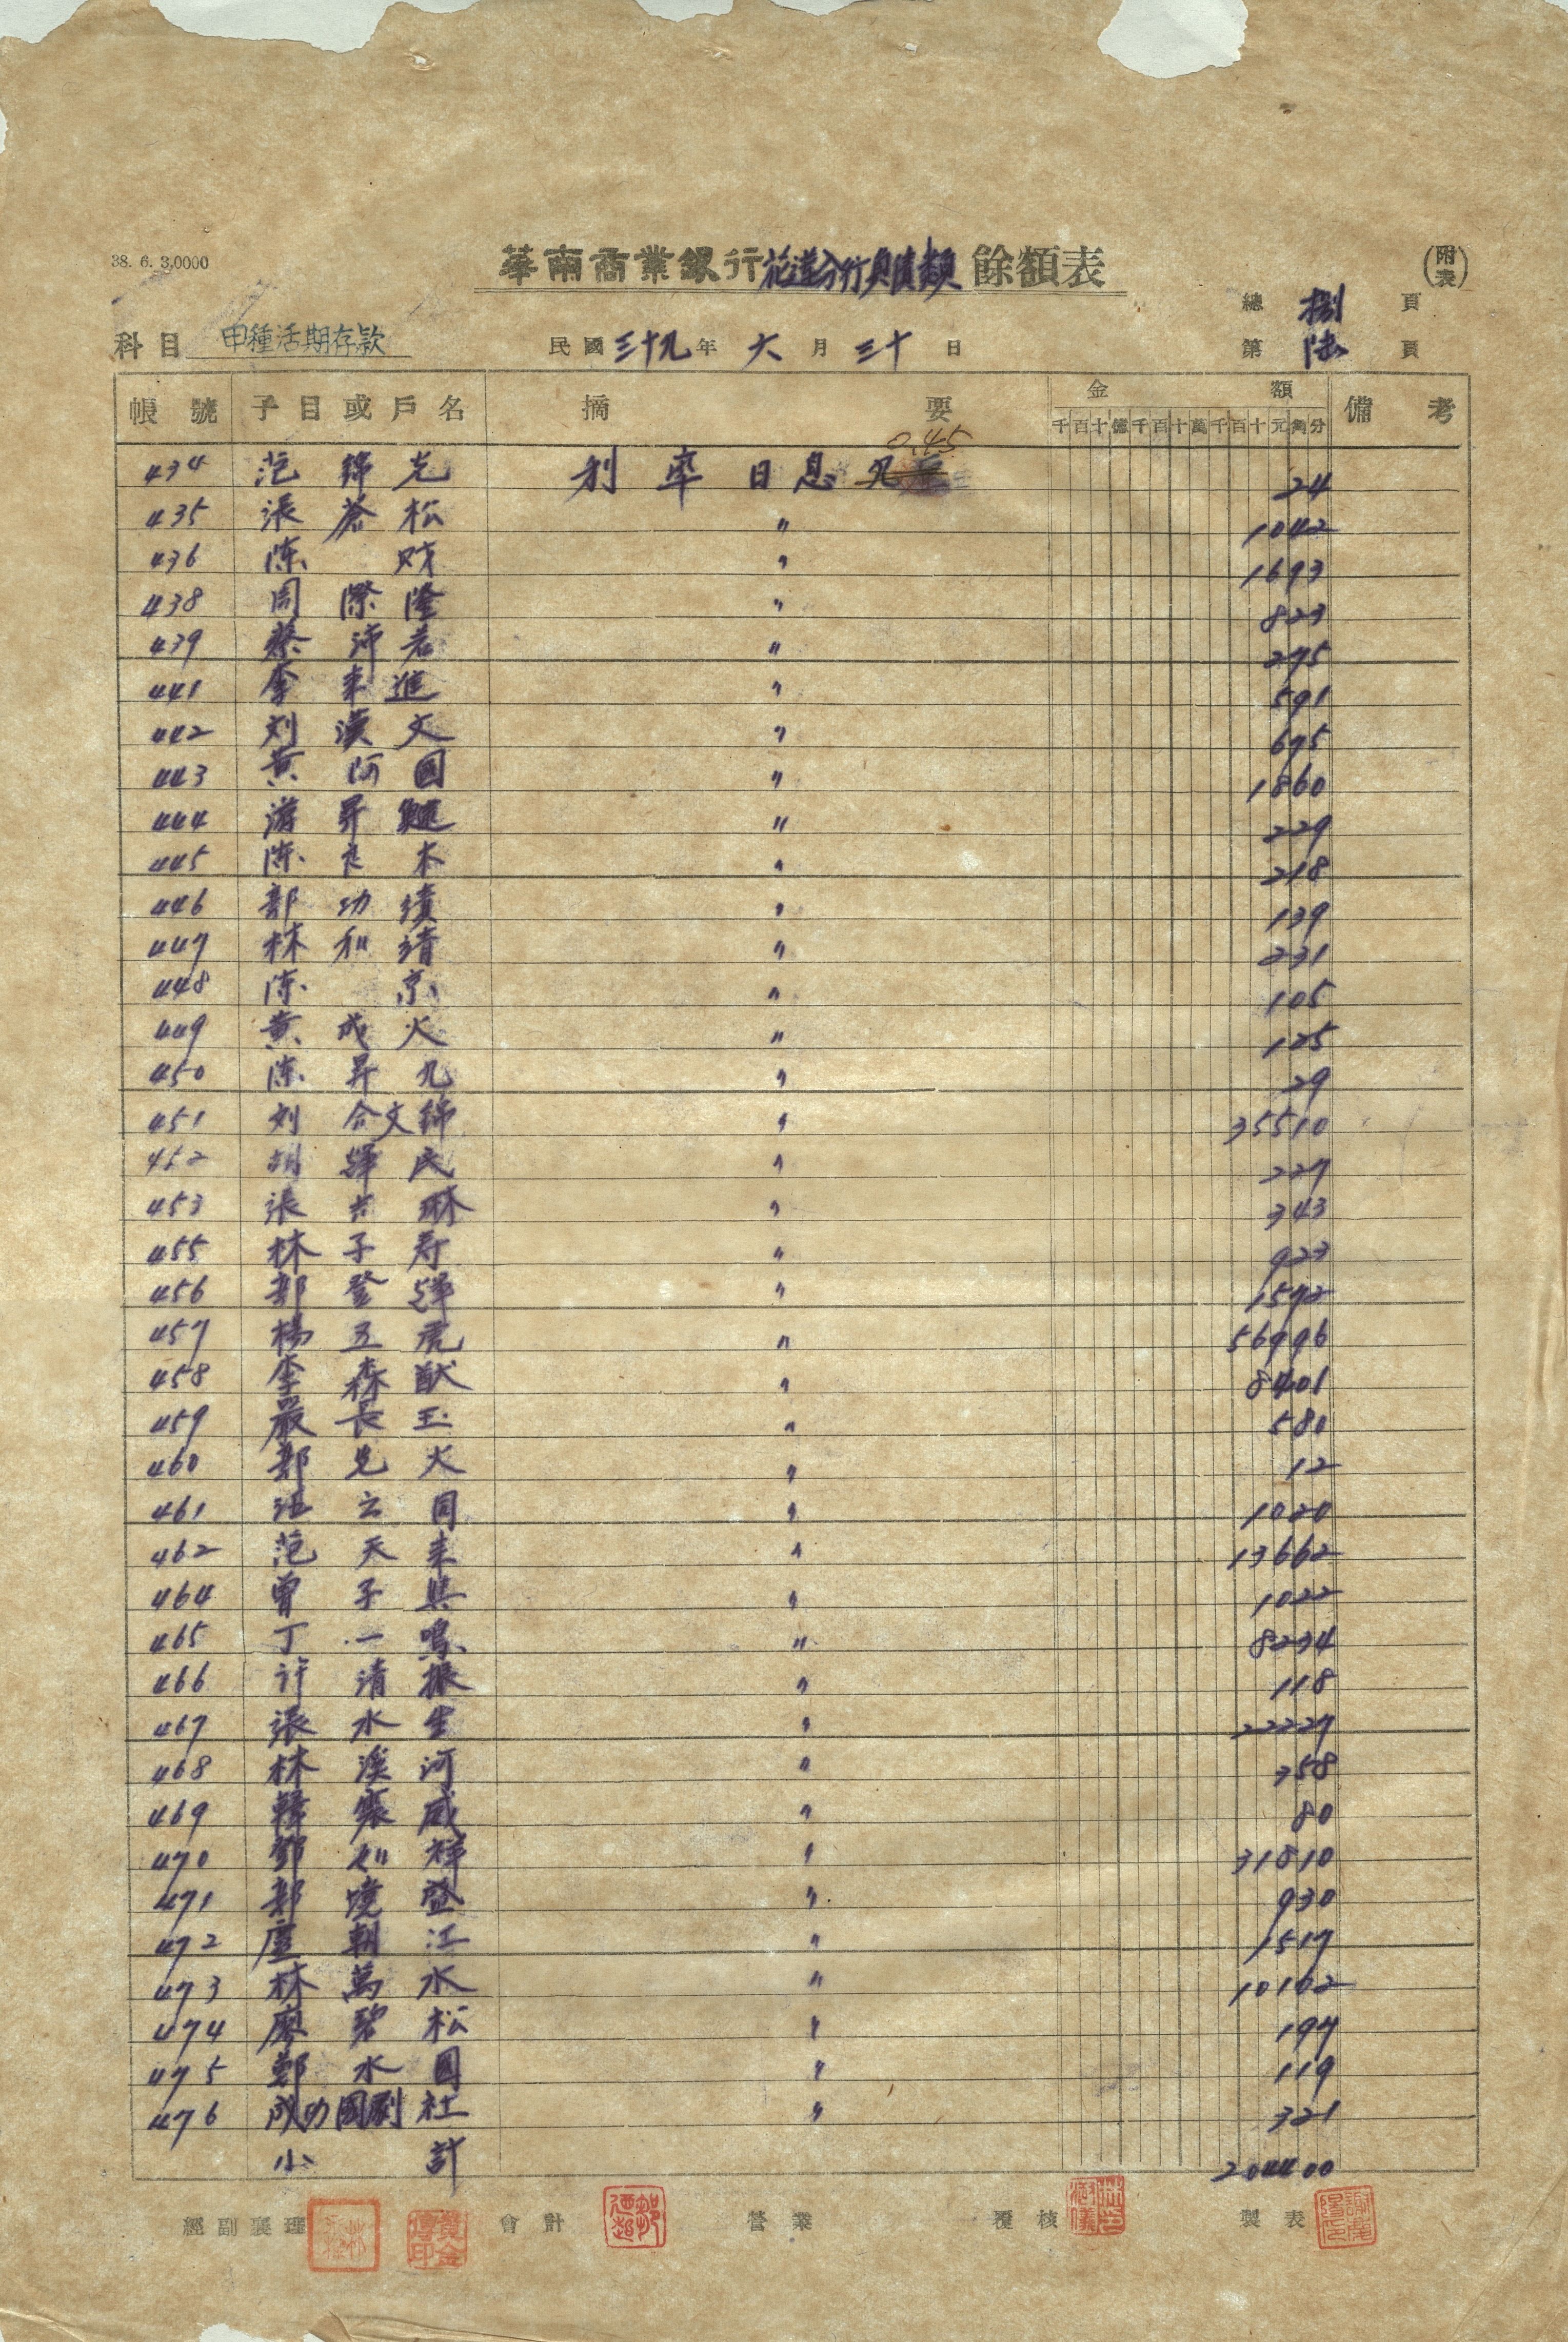 38. 6. 3,0000
華南商業銀行花蓮分行負債類餘額表
(附表)
總 捌 頁
科目 甲種活期存款 民國三十九年 六月 三十日 第 陸 頁
帳號 子目或戶名 摘要 金額 備考
千百十億千百十萬千百十元角分
0.45
434 范錦光 利率日息 24
435 張蒼松 〃 1042
436 陳財 〃 1693
438 周際隆 〃 823
439 蔡沛若 〃 275
441 李來進 〃 591
442 刘漢文 〃 675
443 黃阿國 〃 1860
444 游昇 〃 229
445 陳良木 〃 218
446 郭功績 〃 139
447 林和靖 〃 231
448 陳京 〃 105
449 黃成火 〃 125
450 陳昇九 〃 29
451 刘合文錦 〃 35510
452 胡輝民 〃 227
453 張吉琳 〃 343
455 林子寿 〃 923
456 郭登輝 〃 1572
457 楊五虎 〃 56996
458 李森猷 〃 8401
459 嚴長玉 〃 580
460 郭兒火 〃 12
461 江云同 〃 1020
462 范天来 〃 13662
464 曾子興 〃 1022
465 丁一鳴 〃 8234
466 許清振 〃 118
467 張水生 〃 22227
468 林溪河 〃 358
469 韓寰威 〃 80
470 鄧如祥 〃 31810
471 郭境益 〃 930
472 盧朝江 〃 1517
473 林萬水 〃 10102
474 廖碧松 〃 197
475 鄭水國 〃 119
476 成功國劇社 〃 321
小計 204400
經副襄理 會計 營業 覆核 製表